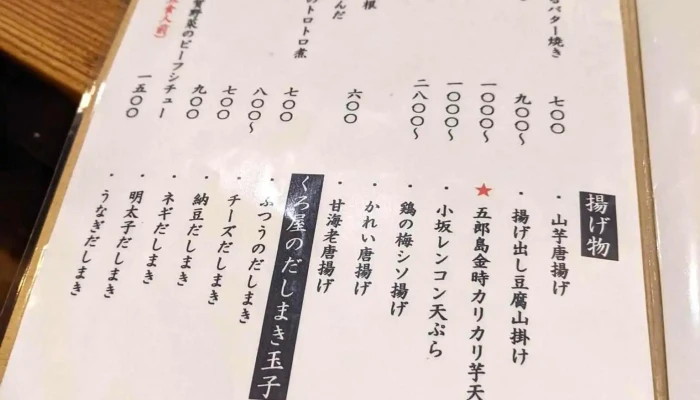 バター焼き
七〇〇
九〇〇〜
一〇〇〇〜
一〇〇〇〜
二八〇〇〜
根
六〇〇
んだ
のトロトロ煮
七〇〇
八〇〇〜
七〇〇
賀野菜のビーフシチュー
九〇〇
一五〇〇
揚げ物
・山芋唐揚げ
・揚げ出し豆腐山掛け
★五郎島金時カリカリ芋天
・小坂レンコン天ぷら
・鶏の梅シソ揚げ
・かれい唐揚げ
・甘海老唐揚げ
くろ屋のだしまき玉子
・ふつうのだしまき
・チーズだしまき
・納豆だしまき
・ネギだしまき
・明太子だしまき
・うなぎだしまき